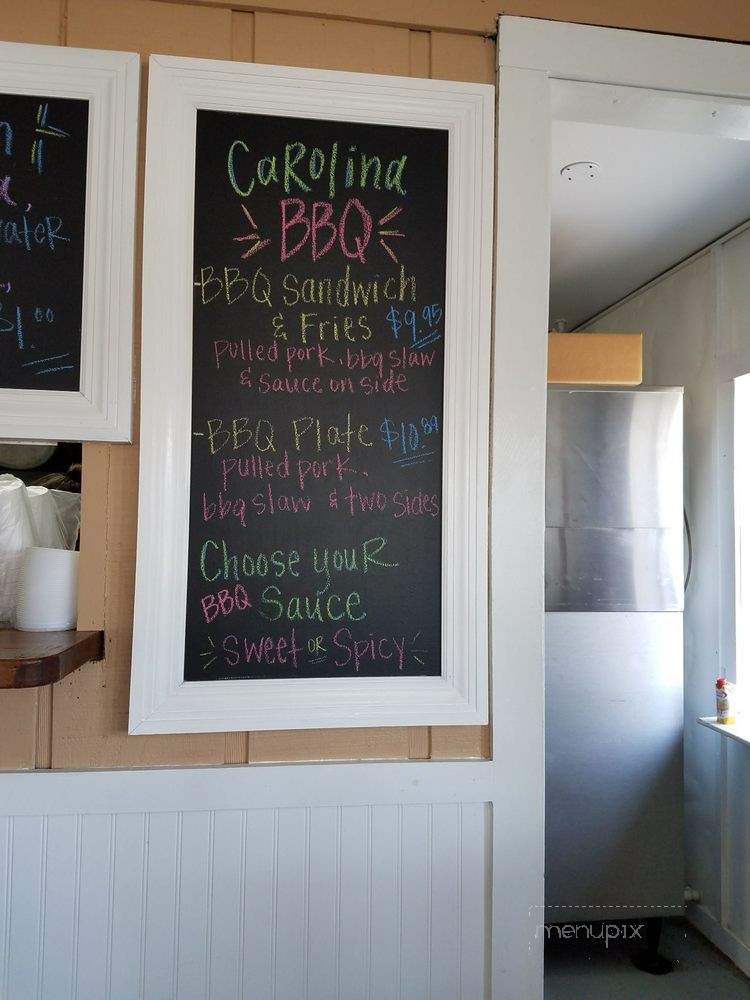 ater
$1.00
Carolina
BBQ
-BBQ Sandwich
& Fries $9.95
pulled pork, bbq slaw
& sauce on side
-BBQ Plate $10.89
pulled pork,
bbq slaw & two sides
Choose your
BBQ Sauce
Sweet or Spicy
menupix